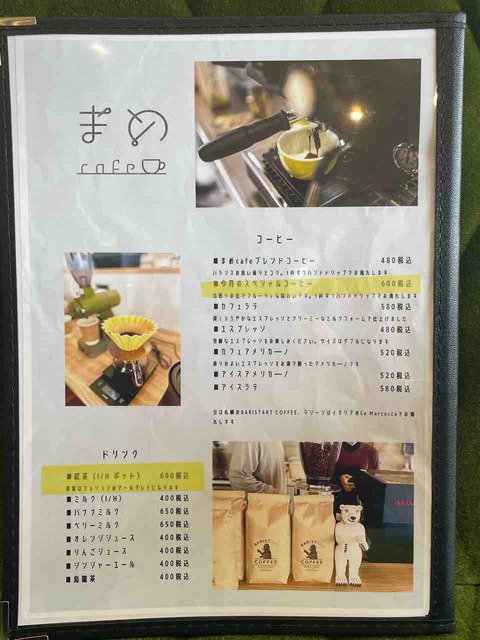 まめ
cafe
コーヒー
■まめcafeブレンドコーヒー 480税込
バランスの良い香りとコク。1杯ずつハンドドリップでお淹れします
■今月のスペシャルコーヒー 600税込
■カフェラテ 580税込
深くまろやかなエスプレッソとクリーミーなミルクフォームで仕上げました
■エスプレッソ 480税込
芳醇なエスプレッソをお楽しみください。サイズはダブルになります
■カフェアメリカーノ 520税込
香りのよいエスプレッソをお湯で割ったアメリカーノです
■アイスアメリカーノ 520税込
■アイスラテ 580税込
豆は札幌のBARISTART COFFEE、マシーンはイタリアのLa Marzoccoでお淹
れします
ドリンク
■紅茶 (I/H ポット) 600税込
■ミルク (I/H) 400税込
■バナナミルク 650税込
■ベリーミルク 650税込
■オレンジジュース 400税込
■りんごジュース 400税込
■ジンジャーエール 400税込
■烏龍茶 400税込
BARISTART
COFFEE
BARISTART
COFFEE